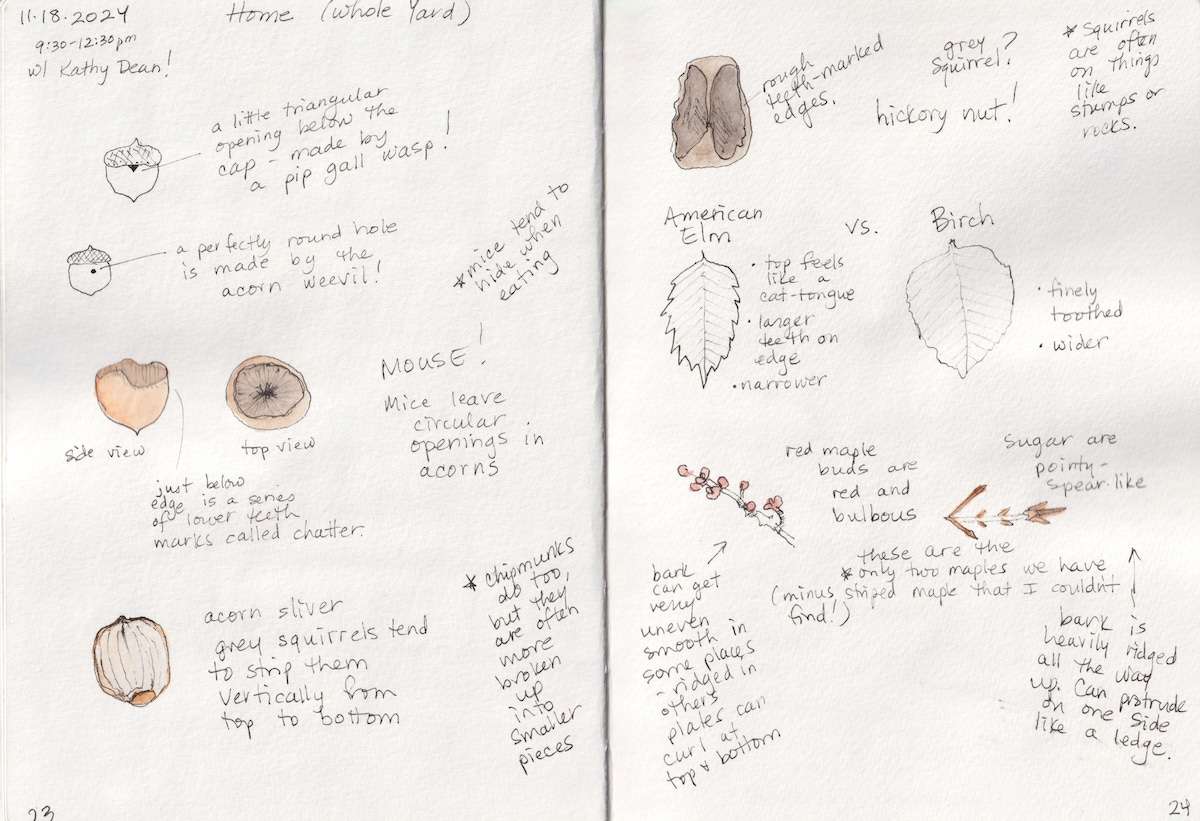 11.18.2024
Home (Whole Yard)
9:30-12:30pm
w/ Kathy Dean!
a little triangular
opening below the
cap - made by
a pip gall wasp!
a perfectly round hole
is made by the
acorn weevil!
*mice tend to
hide when
eating
side view
top view
MOUSE!
Mice leave
circular
openings in
acorns
just below
edge is a series
of lower teeth
marks called chatter.
acorn sliver
grey squirrels tend
to strip them
vertically from
top to bottom
* chipmunks
do too,
but they
are often
more
broken
up
into
smaller
pieces
23
rough
teeth-marked
edges.
grey
squirrel?
hickory nut!
* squirrels
are often
on things
like
stumps or
rocks.
American
Elm
vs.
Birch
• top feels
like a
cat-tongue
• larger
teeth on
edge
• narrower
• finely
toothed
• wider
red maple
buds are
red and
bulbous
sugar are
pointy-
spear-like
these are the
* only two maples we have
(minus striped maple that I couldn't
find!)
bark
can get
very
uneven
smooth in
some places
- ridged in
others
plates can
curl at
top & bottom
bark is
heavily ridged
all the way
up. Can protrude
on one side
like a ledge.
24